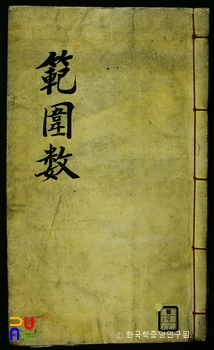 範圍数
한국학중앙연구원